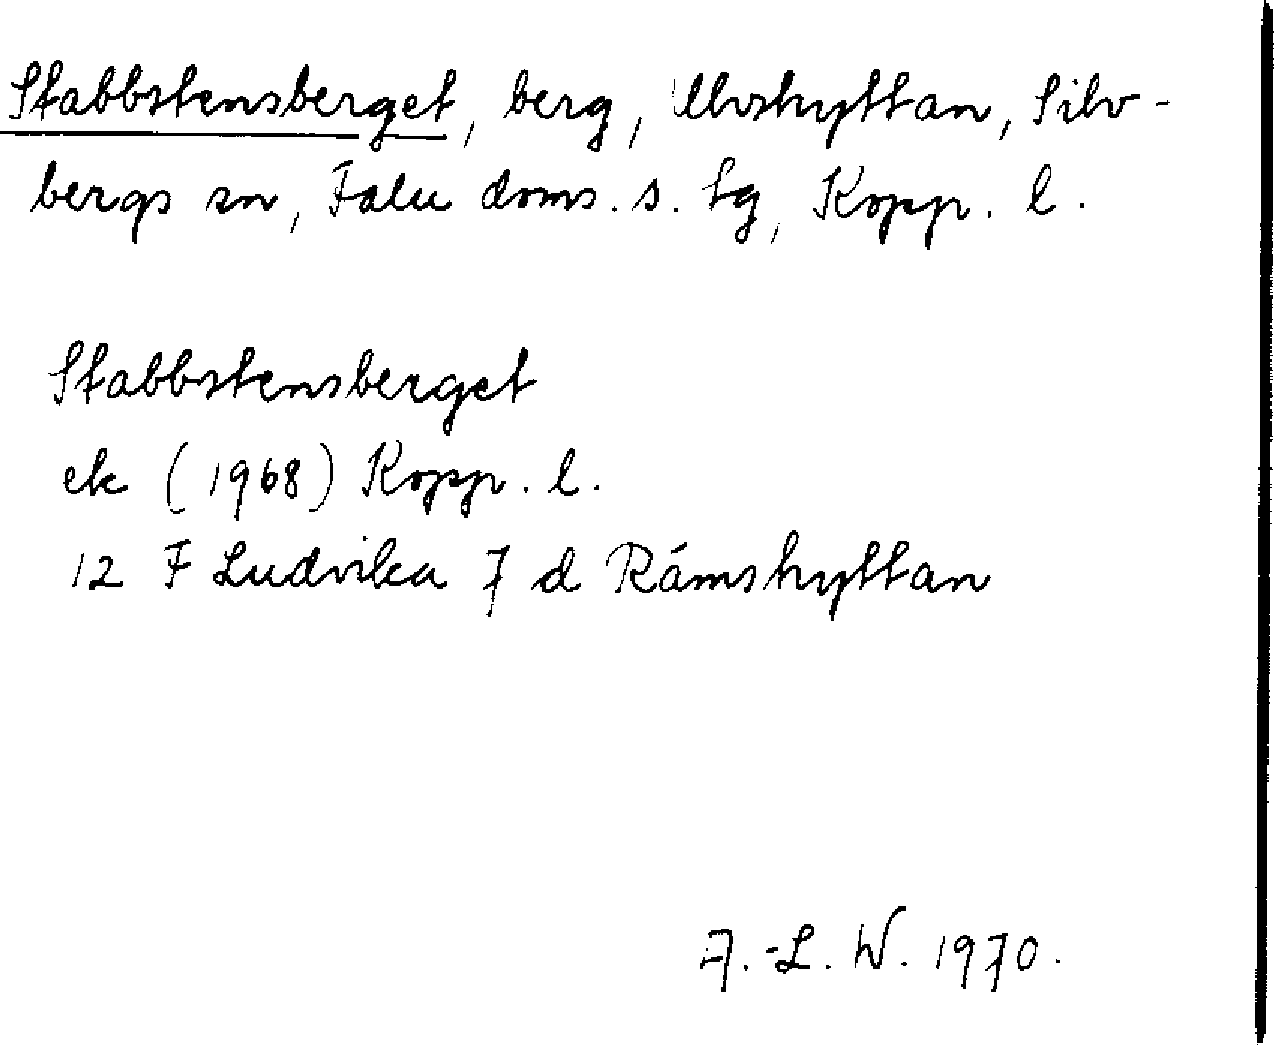 Stabbstensberget, berg, Ulvshyttan, Silv-
bergs sn, Falu doms. s. tg, Kopp. l.
Stabbstensberget
ek (1968) Kopp. l.
12 F Ludvika 7 d Rámshyttan
A.-L. W. 1970.